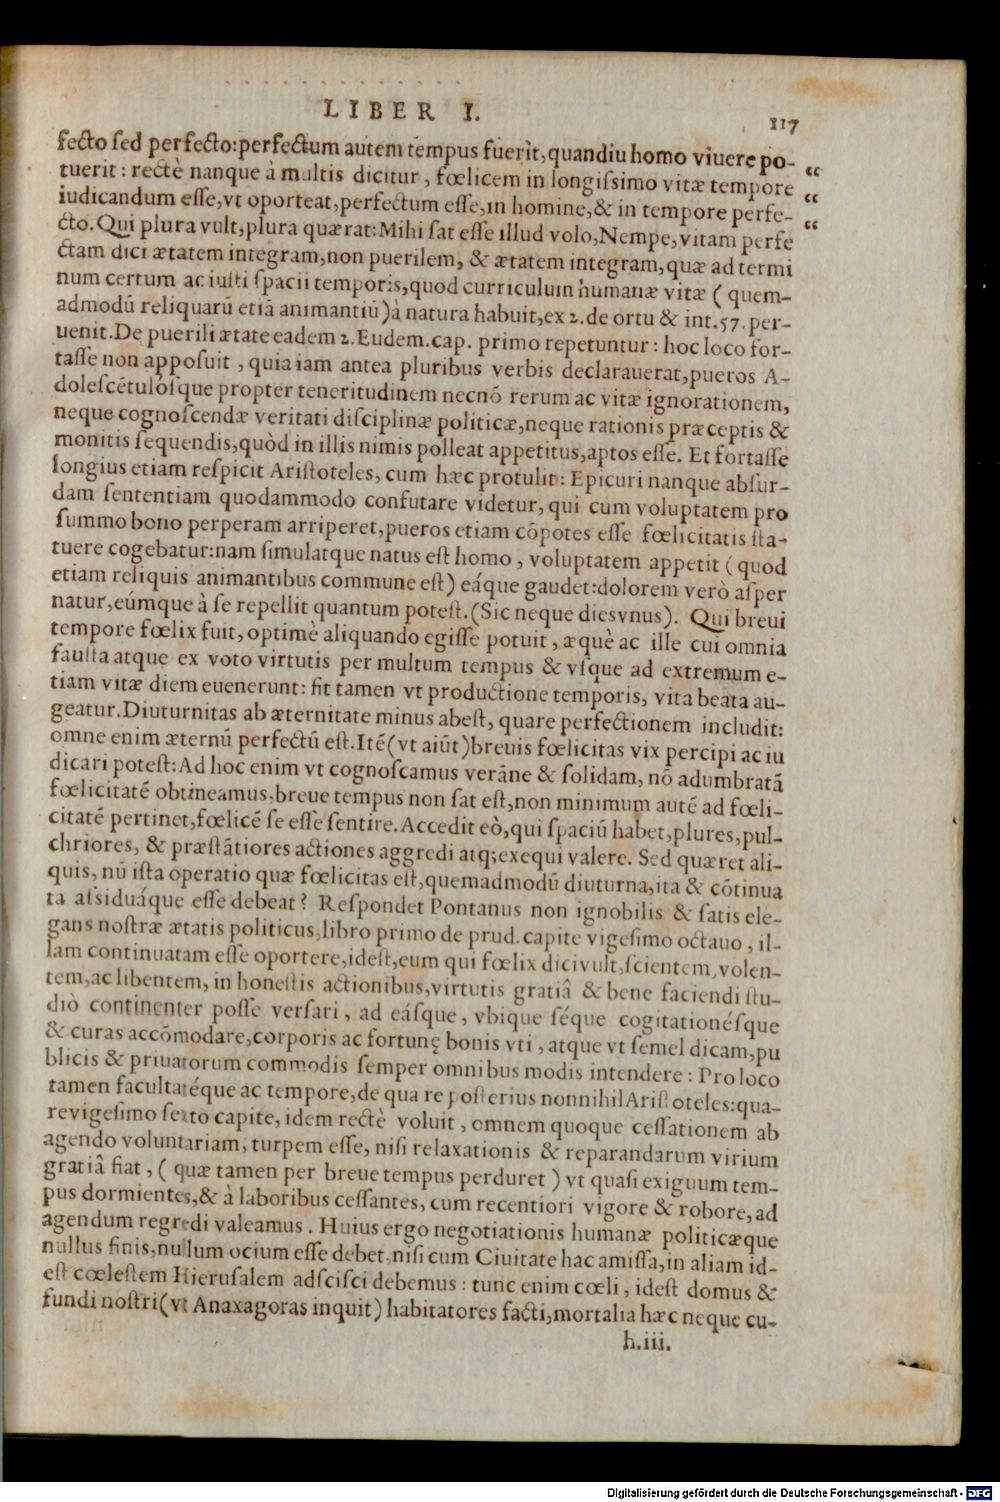 LIBER I. 117
fecto sed perfecto:perfectum autem tempus fuerit,quandiu homo viuere po-
tuerit : rectè nanque à multis dicitur , fœlicem in longissimo vitæ tempore “
iudicandum esse,vt oporteat,perfectum esse,in homine,& in tempore perfe- “
cto.Qui plura vult,plura quærat:Mihi sat esse illud volo,Nempe,vitam perfe “
ctam dici ætatem integram,non puerilem, & ætatem integram,quæ ad termi
num certum ac iusti spacii temporis,quod curriculum humanæ vitæ ( quem-
admodū reliquarū etiā animantiū)à natura habuit,ex 2.de ortu & int.57.per-
uenit.De puerili ætate eadem 2.Eudem.cap. primo repetuntur : hoc loco for-
tasse non apposuit , quia iam antea pluribus verbis declarauerat,pueros A-
dolescétulósque propter teneritudinem necnō rerum ac vitæ ignorationem,
neque cognoscendæ veritati disciplinæ politicæ,neque rationis præceptis &
monitis sequendis,quòd in illis nimis polleat appetitus,aptos esse. Et fortasse
longius etiam respicit Aristoteles, cum hæc protulit: Epicuri nanque absur-
dam sententiam quodammodo confutare videtur, qui cum voluptatem pro
summo bono perperam arriperet,pueros etiam cōpotes esse fœlicitatis sta-
tuere cogebatur:nam simulatque natus est homo , voluptatem appetit ( quod
etiam reliquis animantibus commune est) eáque gaudet:dolorem verò asper
natur,eúmque à se repellit quantum potest.(Sic neque dies vnus). Qui breui
tempore fœlix fuit, optimè aliquando egisse potuit , æquè ac ille cui omnia
fausta atque ex voto virtutis per multum tempus & vsque ad extremum e-
tiam vitæ diem euenerunt: fit tamen vt productione temporis, vita beata au-
geatur.Diuturnitas ab æternitate minus abest, quare perfectionem includit:
omne enim æternū perfectū est.Ité(vt aiūt)breuis fœlicitas vix percipi ac iu
dicari potest:Ad hoc enim vt cognoscamus verāne & solidam, nō adumbratā
fœlicitaté obtineamus,breue tempus non sat est,non minimum auté ad fœli-
citaté pertinet,fœlicé se esse sentire.Accedit eò,qui spaciū habet,plures,pul-
chriores, & præstātiores actiones aggredi atq;exequi valere. Sed quæret ali-
quis, nū ista operatio quæ fœlicitas est,quemadmodū diuturna,ita & cōtinua
ta assiduáque esse debeat? Respondet Pontanus non ignobilis & satis ele-
gans nostræ ætatis politicus,libro primo de prud.capite vigesimo octauo , il-
lam continuatam esse oportere,idest,eum qui fœlix dici vult,scientem,volen-
tem,ac libentem, in honestis actionibus,virtutis gratiâ & bene faciendi stu-
dio continenter posse versari , ad eásque , vbique séque cogitationésque
& curas accōmodare,corporis ac fortunę bonis vti , atque vt semel dicam,pu
blicis & priuatorum commodis semper omnibus modis intendere : Pro loco
tamen facultatéque ac tempore,de qua re posterius nonnihil Aristoteles:qua-
re vigesimo sexto capite, idem rectè voluit , omnem quoque cessationem ab
agendo voluntariam, turpem esse, nisi relaxationis & reparandarum virium
gratiâ fiat , ( quæ tamen per breue tempus perduret ) vt quasi exiguum tem-
pus dormientes,& à laboribus cessantes, cum recentiori vigore & robore, ad
agendum regredi valeamus . Huius ergo negotiationis humanæ politicæque
nullus finis,nullum ocium esse debet,nisi cum Ciuitate hac amissa,in aliam id-
est cœlestem Hierusalem adscisci debemus : tunc enim cœli , idest domus &
fundi nostri(vt Anaxagoras inquit) habitatores facti,mortalia hæc neque cu-
h.iii.
Digitalisierung gefördert durch die Deutsche Forschungsgemeinschaft - DFG